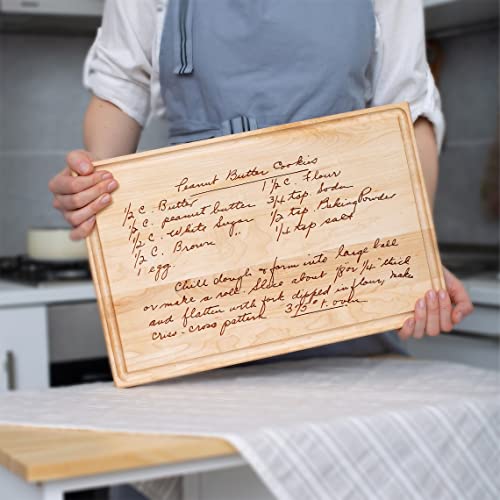 Peanut Butter Cookies
½ C. Butter
½ C. peanut butter
½ C. White Sugar
½ C. Brown "
1 egg
1½ C. Flour
¾ tsp. Soda
½ tsp. Baking Powder
¼ tsp salt
Chill dough & form into large ball
or make a roll. Slice about ⅛ or ¼" thick
and flatten with fork dipped in flour, make
criss-cross pattern 375° F. oven